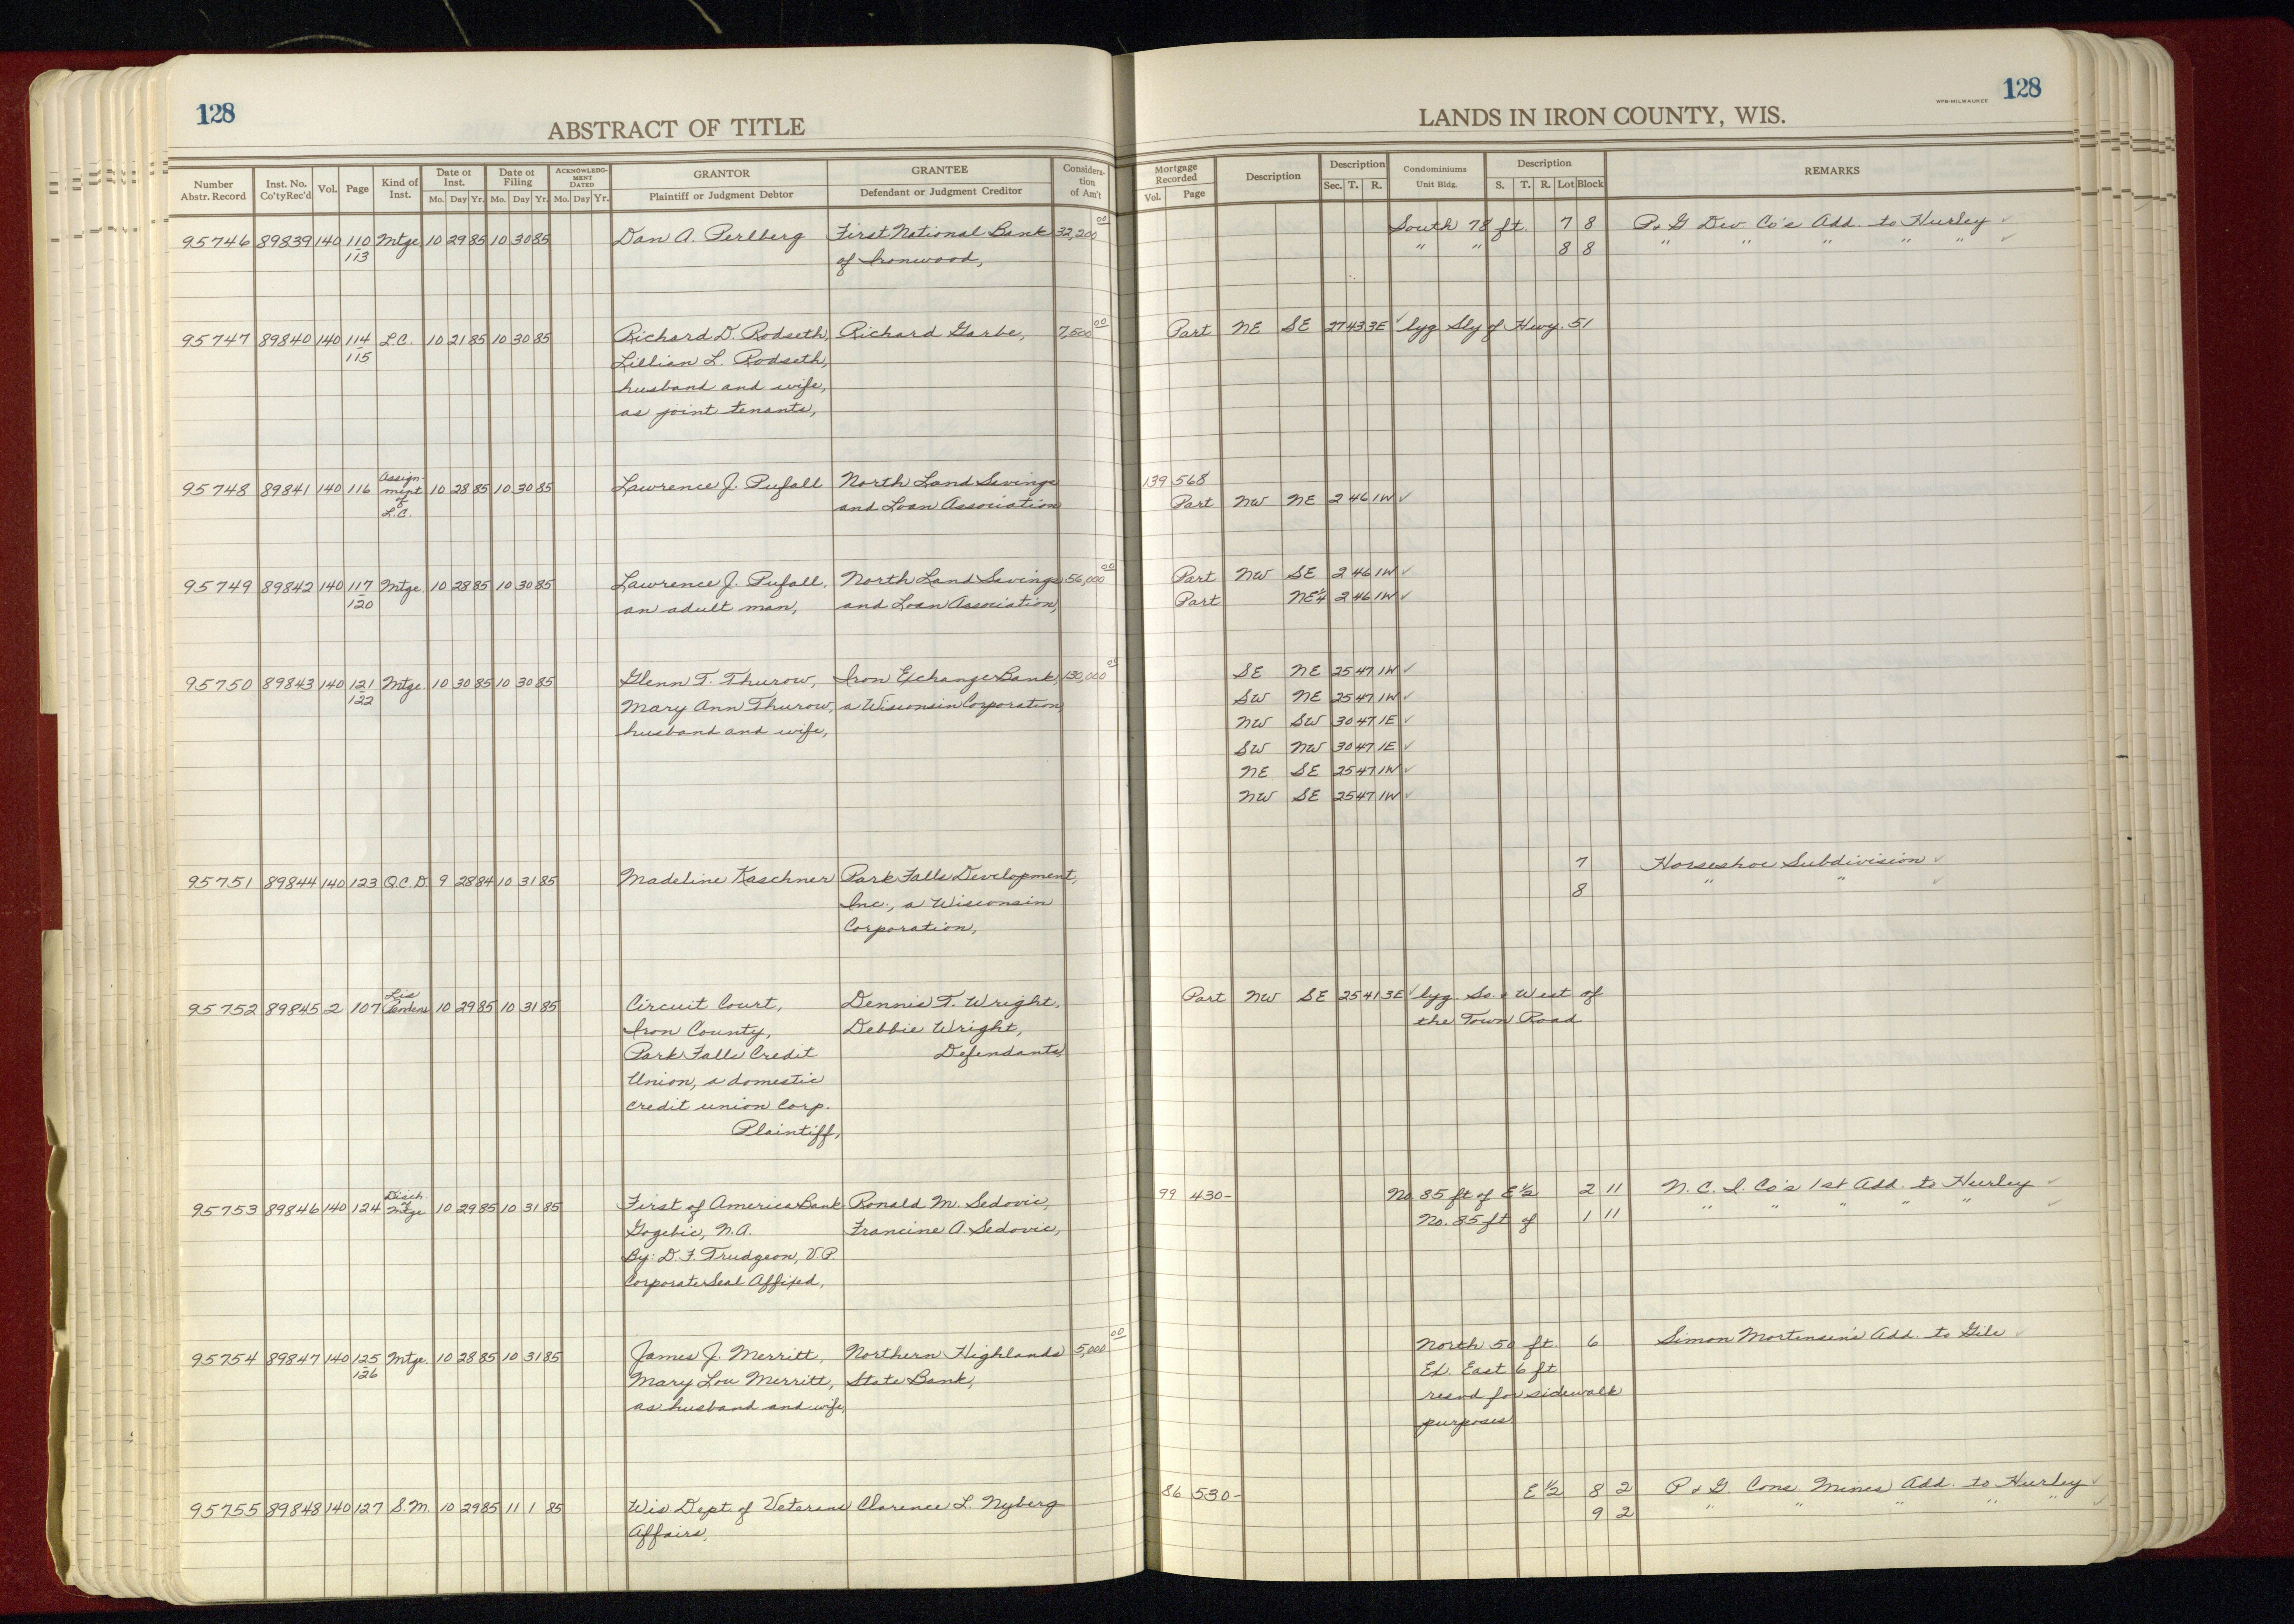 128
ABSTRACT OF TITLE
Number Abstr. Record | Inst. No. Co'ty Rec'd | Vol. | Page | Kind of Inst. | Date of Inst. Mo. Day Yr. | Date of Filing Mo. Day Yr. | ACKNOWLEDGMENT DATED Mo. Day Yr. | GRANTOR Plaintiff or Judgment Debtor | GRANTEE Defendant or Judgment Creditor | Consideration of Am't
95746 89839 140 110 Mtge. 10 29 85 10 30 85 Dan A. Perlberg First National Bank 32,200 00
113 of Ironwood,
95747 89840 140 114 L.C. 10 21 85 10 30 85 Richard D. Rodseth, Richard Garbe, 7,500 00
115 Lillian L. Rodseth,
husband and wife,
as joint tenants,
95748 89841 140 116 Assign-ment of L.C. 10 28 85 10 30 85 Lawrence J. Pufall North Land Savings
and Loan Association
95749 89842 140 117 Mtge. 10 28 85 10 30 85 Lawrence J. Pufall, North Land Savings 56,000 00
120 an adult man, and Loan Association,
95750 89843 140 121 Mtge. 10 30 85 10 30 85 Glenn T. Thurow, Iron Exchange Bank, 130,000 00
122 Mary Ann Thurow, a Wisconsin Corporation,
husband and wife,
95751 89844 140 123 Q.C.D. 9 28 84 10 31 85 Madeline Kaschner Park Falls Development,
Inc., a Wisconsin
Corporation,
95752 89845 2 107 Lis Pendens 10 29 85 10 31 85 Circuit Court, Dennis T. Wright,
Iron County, Debbie Wright,
Park Falls Credit Defendants,
Union, a domestic
credit union Corp.
Plaintiff,
95753 89846 140 124 Disch. of Mtge 10 29 85 10 31 85 First of America Bank- Ronald M. Sedovic,
Gogebic, N.A. Francine A. Sedovic,
By: D.F. Trudgeon, V.P.
Corporate Seal Affixed,
95754 89847 140 125 Mtge. 10 28 85 10 31 85 James J. Merritt, Northern Highlands 5,000 00
126 Mary Lou Merritt, State Bank,
as husband and wife,
95755 89848 140 127 S.M. 10 29 85 11 1 85 Wis Dept of Veterans Clarence L. Nyberg
Affairs,
WPB-MILWAUKEE 128
LANDS IN IRON COUNTY, WIS.
Mortgage Recorded Vol. Page | Description | Description Sec. T. R. | Condominiums Unit Bldg. | Description S. T. R. Lot Block | REMARKS
South 78 ft. 7 8 P. & G Dev. Co's Add. to Hurley ✓
" " 8 8 " " " " " ✓
Part NE SE 27 43 3E ✓ lyg Sly of Hwy. 51
139 568
Part NW NE 2 46 1W ✓
Part NW SE 2 46 1W ✓
Part NE¼ 2 46 1W ✓
SE NE 25 47 1W ✓
SW NE 25 47 1W ✓
NW SW 30 47 1E ✓
SW NW 30 47 1E ✓
NE SE 25 47 1W ✓
NW SE 25 47 1W ✓
7 Horseshoe Subdivision ✓
8 " " ✓
Part NW SE 25 41 3E ✓ lyg. So. & West of
the Town Road
99 430- No. 85 ft of E½ 2 11 N.C.I. Co's 1st Add. to Hurley ✓
No. 85 ft of 1 11 " " " " " ✓
North 50 ft. 6 Simon Mortensen's Add. to Gile ✓
Ex. East 6 ft
resvd for sidewalk
purposes
86 530- E½ 8 2 P. & G. Cons. Mines Add. to Hurley ✓
9 2 " " " " " ✓